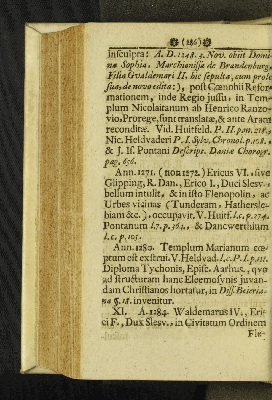 (286)
insculpta: A. D. 1248. 3. Nov. obiit Domi-
na Sophia, Marchionissæ de Brandenburg,
Filia Gvaldemari II. hic sepulta, cum prole
sua, de novo edita:), post Cœnobii Refor-
mationem, inde Regio jussu, in Tem-
plum Nicolaitanum ab Henrico Ranzo-
vio, Prorege, sunt translatæ, & ante Aram
reconditæ. Vid. Huitfeld. P. II. pan. 218.,
Nic. Heldvaderi P. I. Sylv. Chronol. p. 108.,
& J. Is. Pontani Descript. Daniæ Chorogr.
pag. 656.
Ann. 1271. (non 1272.) Ericus VI. sive
Glipping, R. Dan., Erico I., Duci Slesv.,
bellum intulit, & in isto Flenopolin, ac
Urbes vicinas (Tunderam, Hathersle-
biam &c.), occupavit, V. Huitf. l. c. p. 274.
Pontanum l. 7. p. 361. & Dancwerthium
l. c. p. 105.
Ann. 1280. Templum Marianum cœ-
ptum est exstrui. V. Heldvad. l. c. P. I. p. 111.
Diploma Tychonis, Episc. Aarhus., qvo
ad structuram hanc Eleemosynis juvan-
dam Christianos hortatur, in Diss. Beieria-
na §. 18. invenitur.
XI. A. 1284. Waldemarus IV., Eri-
ci F., Dux Slesv., in Civitatum Ordinem
Fle-